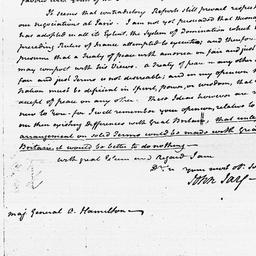 It seems that contradictory Reports still prevail respect
our negociations at Paris. I am not yet persuaded that
has adopted in all its Extent, the System of Domination which
preceding Rulers of France attempted to execute; and therefore
presume that a Treaty of peace with America on fair and just
may comport with his Views. a Treaty of peace on any other
fair and just Terms is not desireable; and in my opinion
Nation must be deficient in Spirit, power, or wisdom, that
accept of peace on any other. These Ideas however are
new to You - for I well remember your opinion, relative to
one then existing Differences with Great Britain, that unless
arrangement on solid Terms could be made with Great
Britain, it would be better to do nothing -
with great Esteem and Regard I am
Dr. Sir your most ob. Se
John Jay -
maj General A. Hamilton -